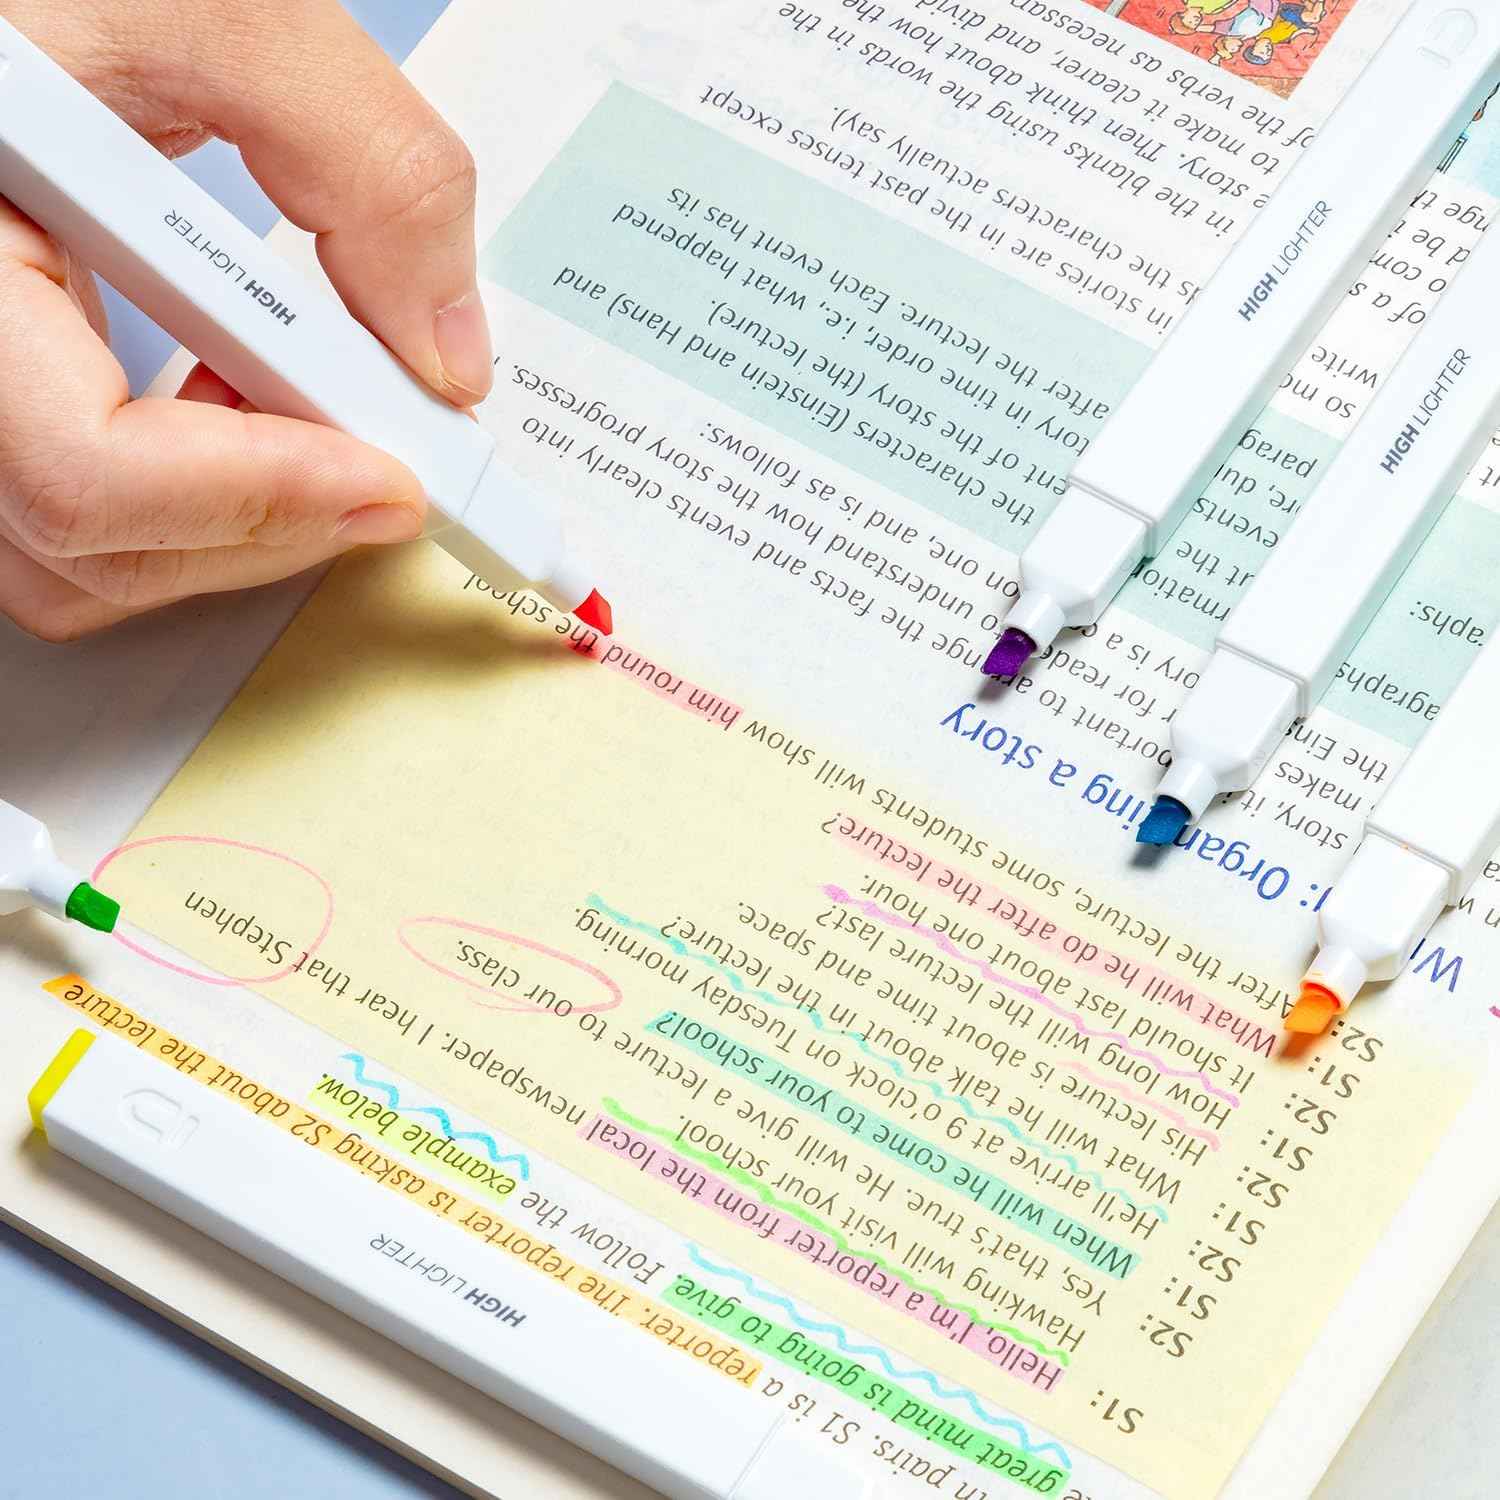 in pairs. S1 is a reporter. The reporter is asking S2 about the lecture
great mind is going to give. Follow the example below.
S1: Hello, I'm a reporter from the local newspaper. I hear that Stephen
Hawking will visit your school.
S2: Yes, that's true. He will give a lecture to our class.
S1: When will he come to your school?
S2: He'll arrive at 9 o'clock on Tuesday morning.
S1: What will he talk about in the lecture?
S2: His lecture is about time and space.
S1: How long will the lecture last?
S2: It should last about one hour.
S1: What will he do after the lecture?
S2: After the lecture, some students will show him round the school
a story
story, it to arrange the facts and events clearly into
makes for to understand how the story progresses.
the is a on one, and is as follows:
the characters (Einstein and Hans) and
of the story (the lecture).
in time order, i.e., what happened
after the lecture. Each event has its
in stories are in the past tenses except
the characters actually say).
in the blanks using the words in the
story. Then think about how the
to make it clearer, and
of the verbs as
HIGHLIGHTER
HIGHLIGHTER
HIGHLIGHTER
HIGHLIGHTER